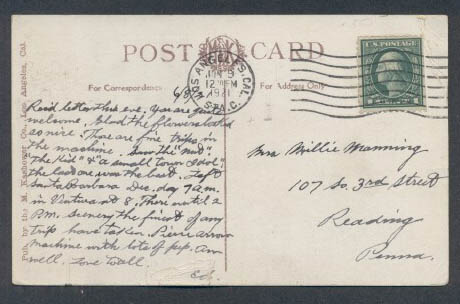 POST CARD
For Correspondence
For Address Only
LOS ANGELES, CAL.
JUN 9
12 PM
1921
STA. C.
U.S. POSTAGE
6/8/21
Rec'd letter this eve, you are quite
welcome. Glad the flowers lasted
so nice. Those are fine trips in
the machine. Saw the "nut"
"The Kid" & "a small Town Idol"
the last one was the best. Left
Santa Barbara Dec. day 7 am.
in Ventura at 8. There until 2
P.M. scenery the finest of any
trip have taken. Pierce arrow
machine with lots of pep. Am
well. Love to all.
Ed.
Mrs Millie Manning
107 So. 3rd Street
Reading
Penna.
Pub. by the M. Kashower Co., Los Angeles, Cal.